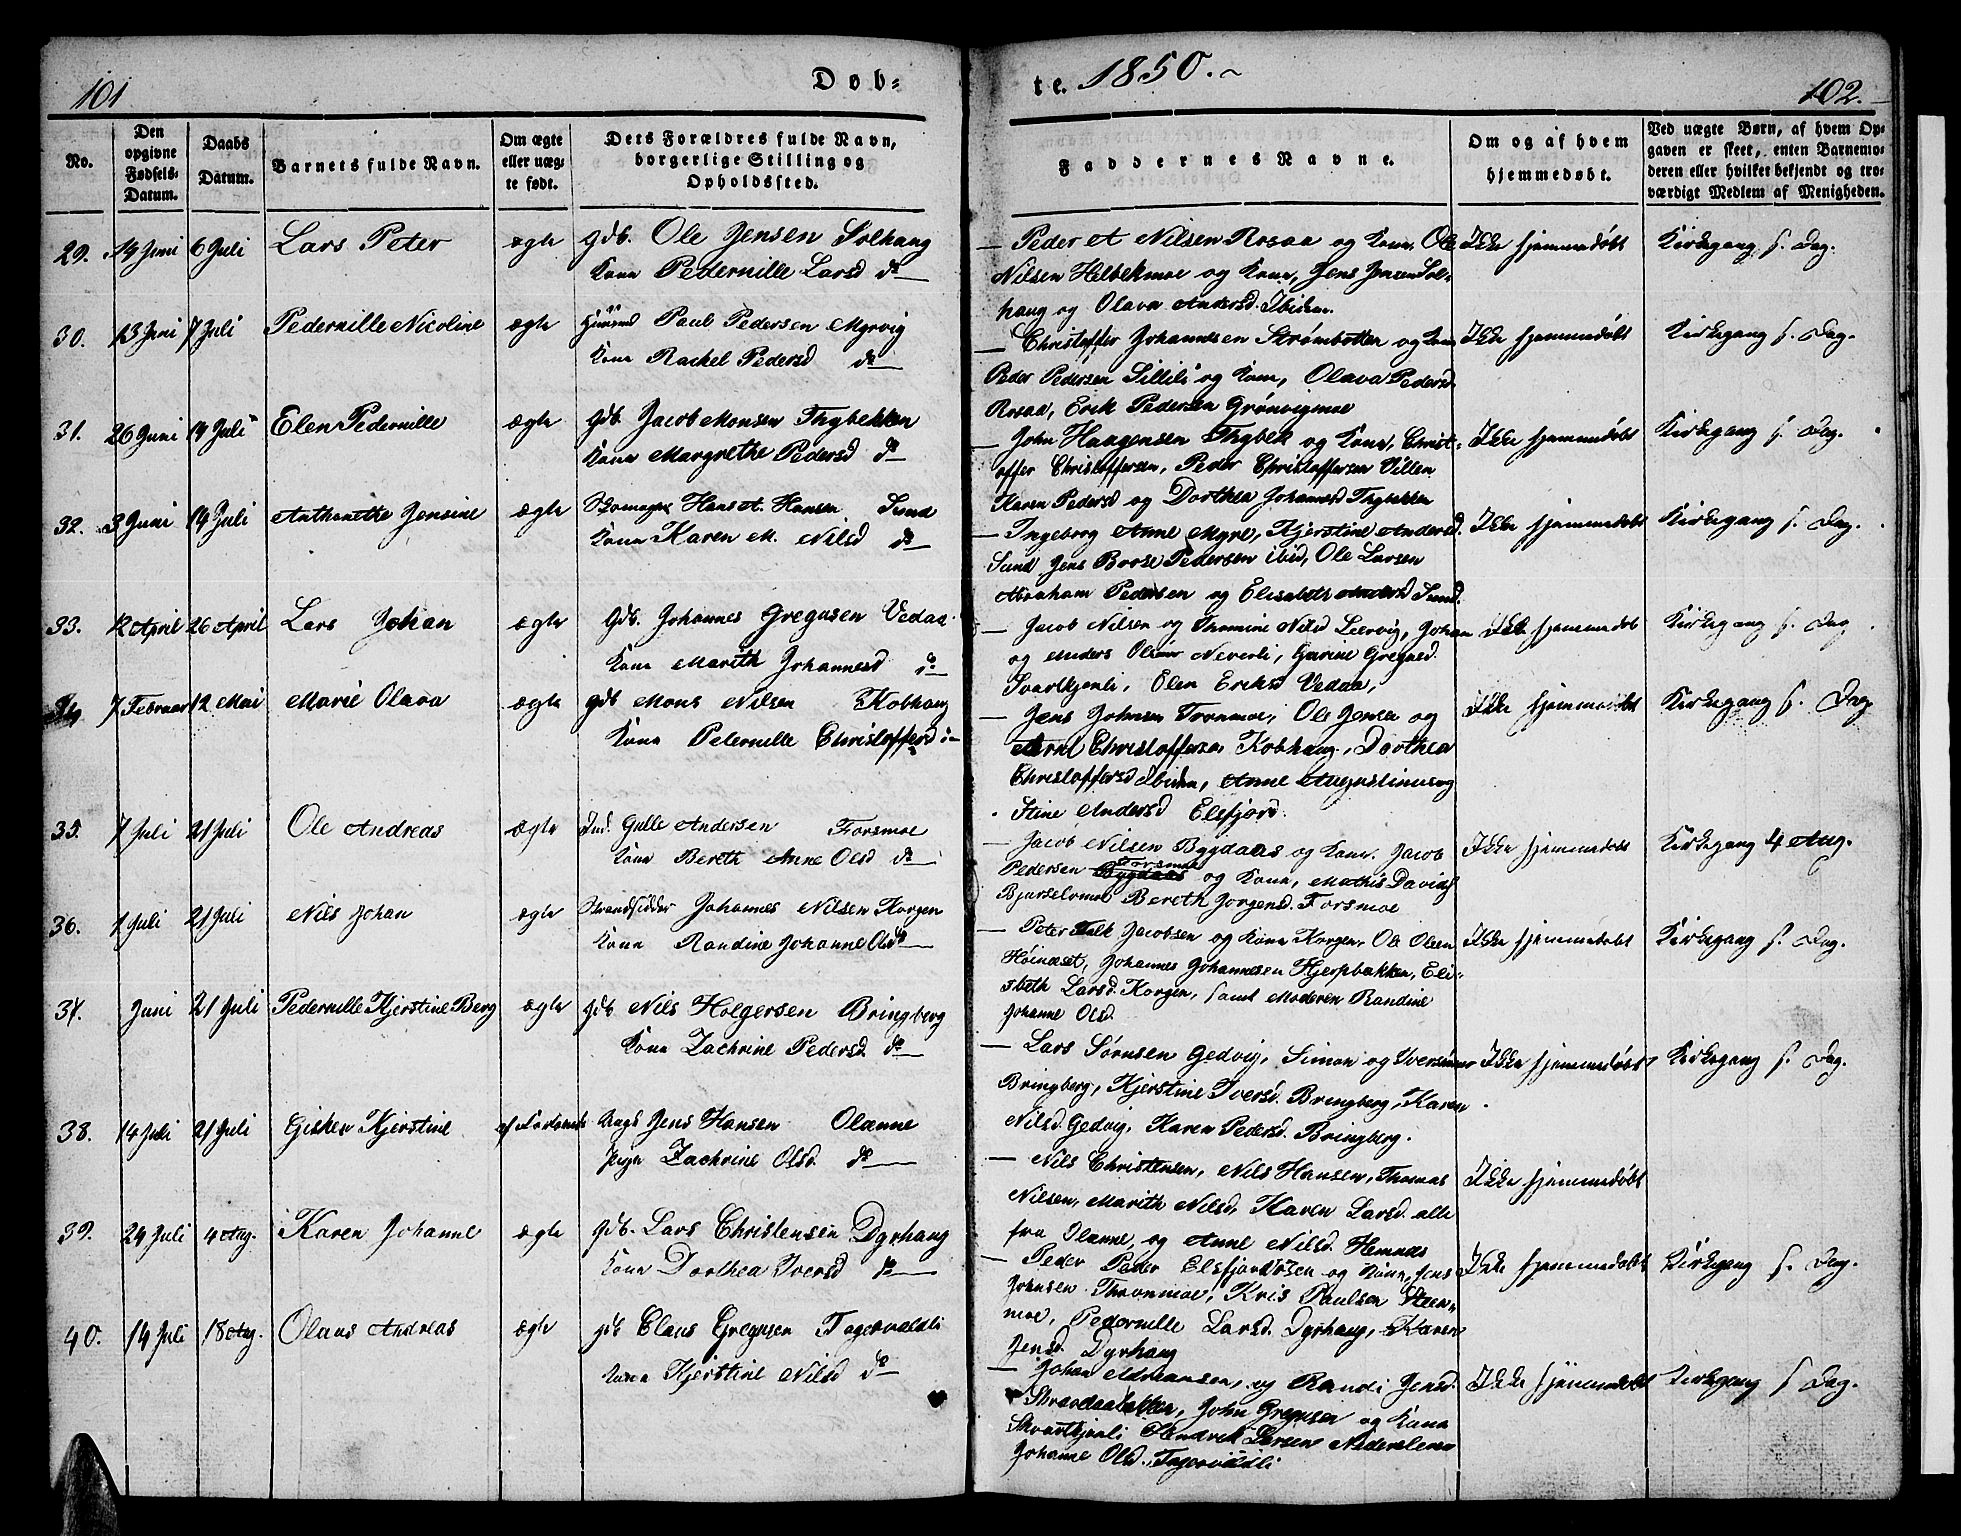 101
Døb=
te. 1850.
102.
No.
Den opgivne Fødsels-Datum.
Daabs Datum.
Barnets fulde Navn.
Om ægte eller uæg-te født.
Dets Forældres fulde Navn, borgerlige Stilling og Opholdssted.
Faddernes Navne.
Om og af hvem hjemmedøbt.
Ved uægte Børn, af hvem Op-gaven er skeet, enten Barnemo-deren eller hvilket bekjendt og tro-værdigt Medlem af Menigheden.
29. 14 Juni 6 Juli Lars Peter ægte Gdb. Ole Jensen Solhaug
Kone Pedernille Larsd do
Peder A Nilsen Rosaa og Kone, Ole
Nilsen Helbekmoe og Kone, Jens Jensen Sol-
haug og Olava Andersd. Ibidem.
Ikke hjemmedøbt Kirkegang s. Dag.
30. 13 Juni 7 Juli Pedernille Nicoline ægte Huusmd Paul Pedersen Myrvig
Kone Rachel Pedersd do
Christoffer Johannesen Strømbotten og Kone
Peder Pedersen Lillili og Kone, Olava Pedersd
Rosaa, Erik Pedersen Grønvigmoe
Ikke hjemmedøbt Kirkegang s. Dag.
31. 26 Juni 14 Juli Elen Pedernille ægte Gdb. Jacob Monsen Thybekken
Kone Margrethe Pedersd do
John Haagensen Thybek og Kone, Christ-
offer Christoffersen, Peder Christoffersen Villen
Karen Pedersd og Dorthea Johannesd Thybekken
Ikke hjemmedøbt Kirkegang s. Dag.
32. 3 Juni 14 Juli Anthonette Jensine ægte Skomager Hans A. Hansen Sund
Kone Karen M. Nilsd do
Ingeborg Anne Myre, Kjerstine Andersd.
Sund Jens Brose Pedersen ibid, Ole Larsen
Abraham Pedersen og Elisabeth Andersd Sund.
Ikke hjemmedøbt Kirkegang s. Dag.
33. 12 April 26 April Lars Johan ægte Gdb. Johannes Gregusen Vedaa
Kone Marith Johannesd do
Jacob Nilsen og Thomine Nilsd Leervig, Johan
og Anders Olsen Neverli, Gurine Gregusd.
Svartkjenli, Elen Eriksd Vedaa,
Ikke hjemmedøbt Kirkegang s. Dag
34 7 Februar 12 Mai Marie Olava ægte Gdb Mons Nilsen Kobhaug
Kone Peternille Christoffersd do
Jens Johnsen Tronmoe, Ole Jensen og
Arne Christoffersen Kobhaug, Dorthea
Christoffersd Ibidem, Anne Augustinusog
Stine Andersd Elsfjord.
Ikke hjemmedøbt Kirkegang s. Dag
35. 7 Juli 21 Juli Ole Andreas ægte Ind. Gulle Andersen Forsmoe
Kone Bereth Anne Olsd do
Jacob Nilsen Bygdaas og Kone. Jacob
Pedersen Forsmoe og Kone, Mathis Davids
Bereth Jørgensd. Forsmoe
Ikke hjemmedøbt Kirkegang 4 Aug.
36. 1 Juli 21 Juli Nils Johan ægte Strandsidder Johannes Nilsen Korgen
Kone Randine Johanne Olsd do
Peter Falk Jacobsen og Kone Korgen, Ole Olsen
Høineset, Johannes Johannesen Hjerpbakken, Eli-
sbeth Larsd. Korgen, samt Moderen Randine
Johanne Olsd.
Ikke hjemmedøbt Kirkegang s. Dag.
37. Juni 21 Juli Pedernille Kjerstine Berg ægte Gdb Nils Holgersen Bringberg
Kone Zachrine Pedersd do
Lars Sørnsen Gedvig, Simon og Iversønner
Bringberg, Kjerstine Iversd. Bringberg, Karen
Nilsd. Gedvig, Karen Pedersd. Bringberg.
Ikke hjemmedøbt Kirkegang s. Dag.
38. 14 Juli 21 Juli Gisken Kjerstine Ungk Jens Hansen Olænne
Pige Zachrine Olsd. do
Nils Christensen, Nils Hansen, Thomas
Nilsen, Marith Nilsd, Karen Larsd. alle
fra Olænne, og Anne Nilsd. Hemnes
Ikke hjemmedøbt
39. 24 Juli 4 Aug. Karen Johanne ægte Gdb. Lars Christensen Dyrhaug
Kone Dorthea Iversd do
Peder Peder Elsfjordøsen og Kone, Jens
Johnsen Thronmoe, Kris Paulsen Steen-
moe, Pedernille Larsd. Dyrhaug, Karen
Jensd. Dyrhaug
Ikke hjemmedøbt Kirkegang s. Dag.
40. 14 Juli 18 Aug. Olaus Andreas ægte Gdb Claus Gregusen Fagervoldli
Kone Kjerstine Nilsd do
Johan Admansen, og Randi Jensd.
John Gregusen og Kone
Svartkjenli Hendrik Larsen Nederleeren
Johanne Olsd. Fagervoldli
Ikke hjemmedøbt Kirkegang s Dag.